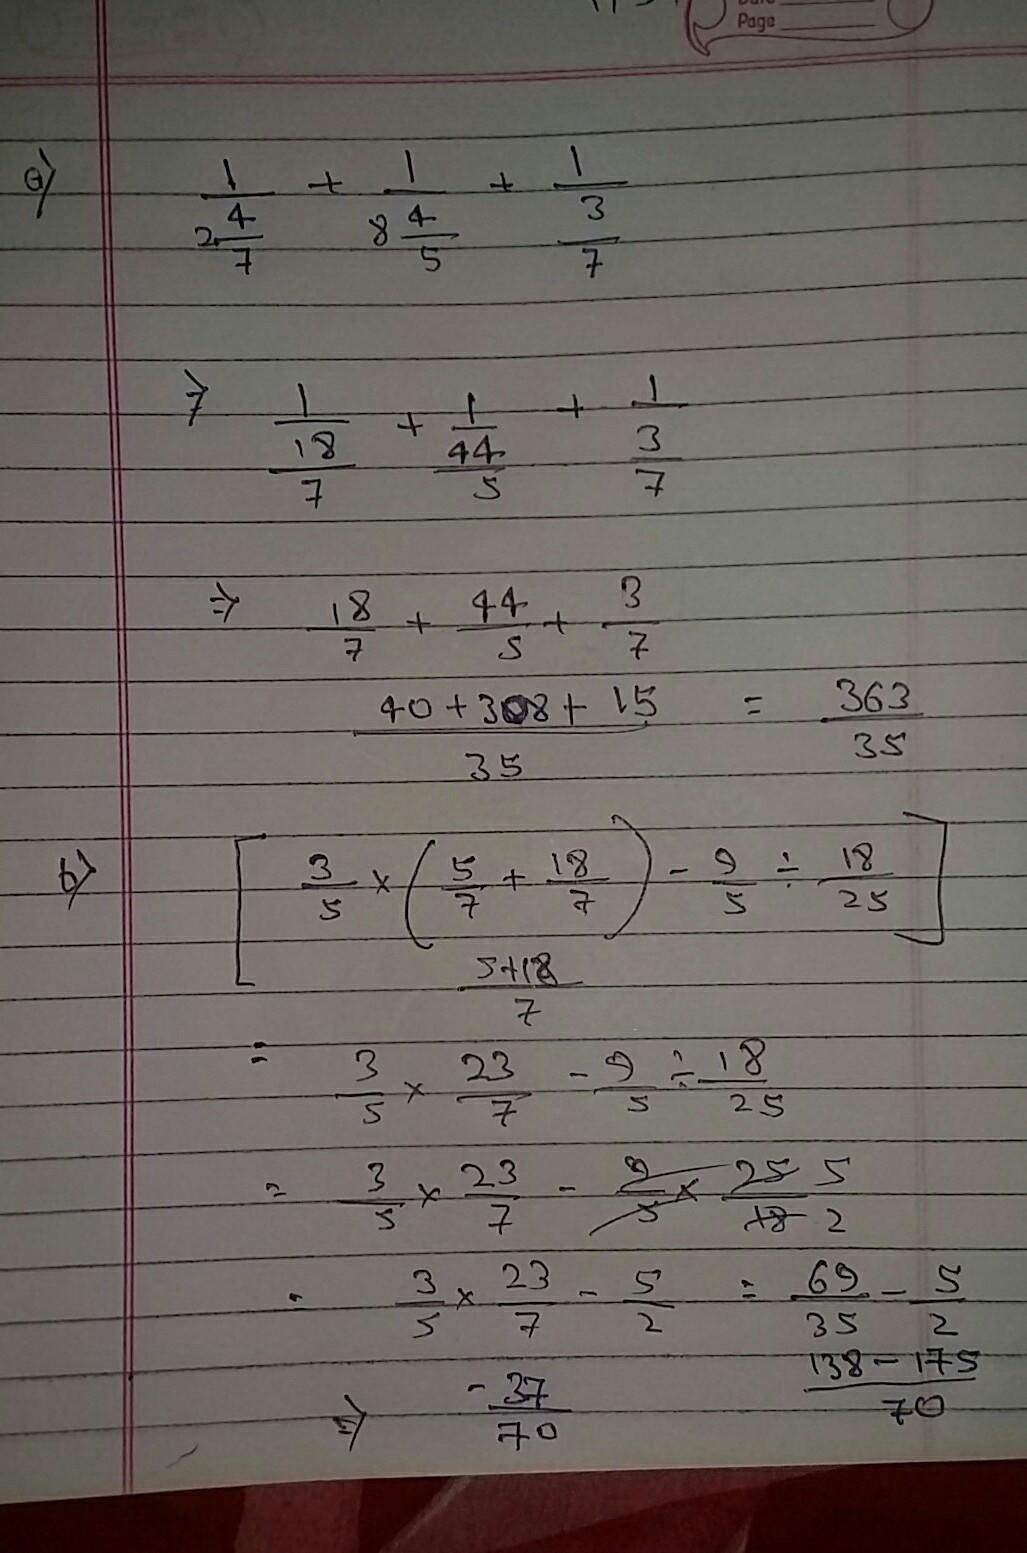 Page
a) 1/(2 4/7) + 1/(8 4/5) + 1/(3/7)
⇒ 1/(18/7) + 1/(44/5) + 1/(3/7)
⇒ 18/7 + 44/5 + 3/7
(40+308+15)/35 = 363/35
b) [3/5 × (5/7 + 18/7) - 9/5 ÷ 18/25]
(5+18)/7
= 3/5 × 23/7 - 9/5 ÷ 18/25
= 3/5 × 23/7 - 9/5 × 25/18 5/2
= 3/5 × 23/7 - 5/2 = 69/35 - 5/2
(138-175)/70
⇒ -37/70